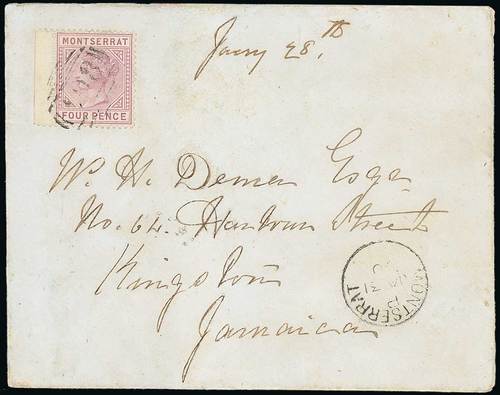 MONTSERRAT
FOUR PENCE
Jany 28.th
W. H. Esqr
No. 64. Harbour Street
Kingston
Jamaica
MONTSERRAT